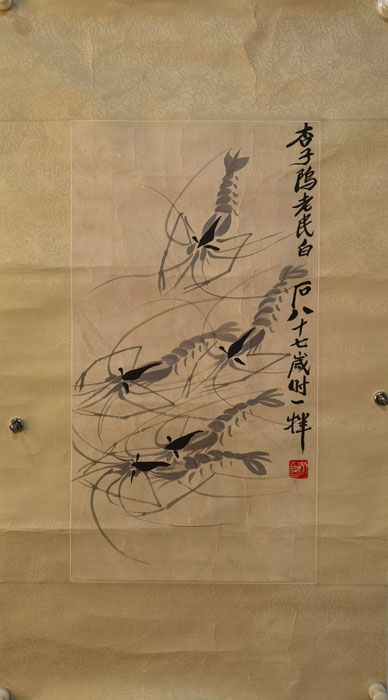 杏子隖老民白
石八十七歲时一挥